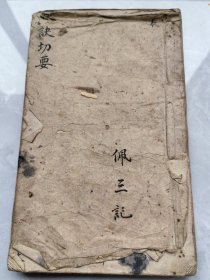 訣切要
佩三記